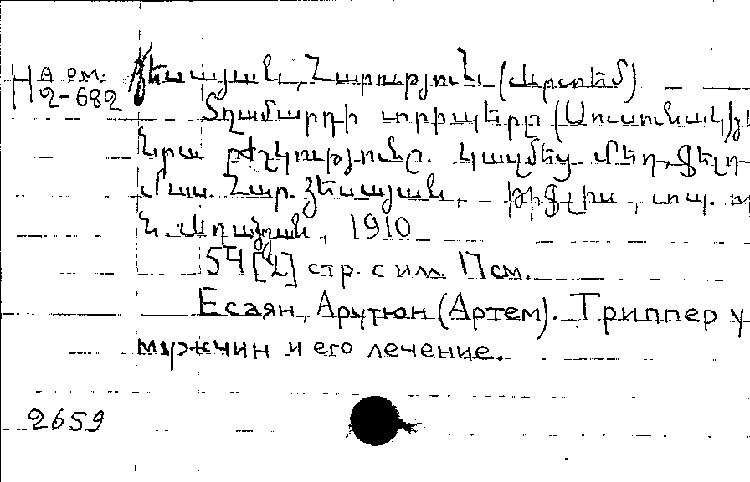 На арм.
2-682
Եսայան, Հարություն (Արտեմ)
Տղամարդի տրիպերը (Սուսունակ)
նրա բժշկությունը. կազմեց մեդ. ֆելդ
Մաս. Հար. Եսայան, Թիֆլիս, տպ.
Ն. Աղանյան, 1910
54 [2] стр. с илл. 17 см.
Есаян, Арутюн (Артем). Триппер у
мужчин и его лечение.
2659